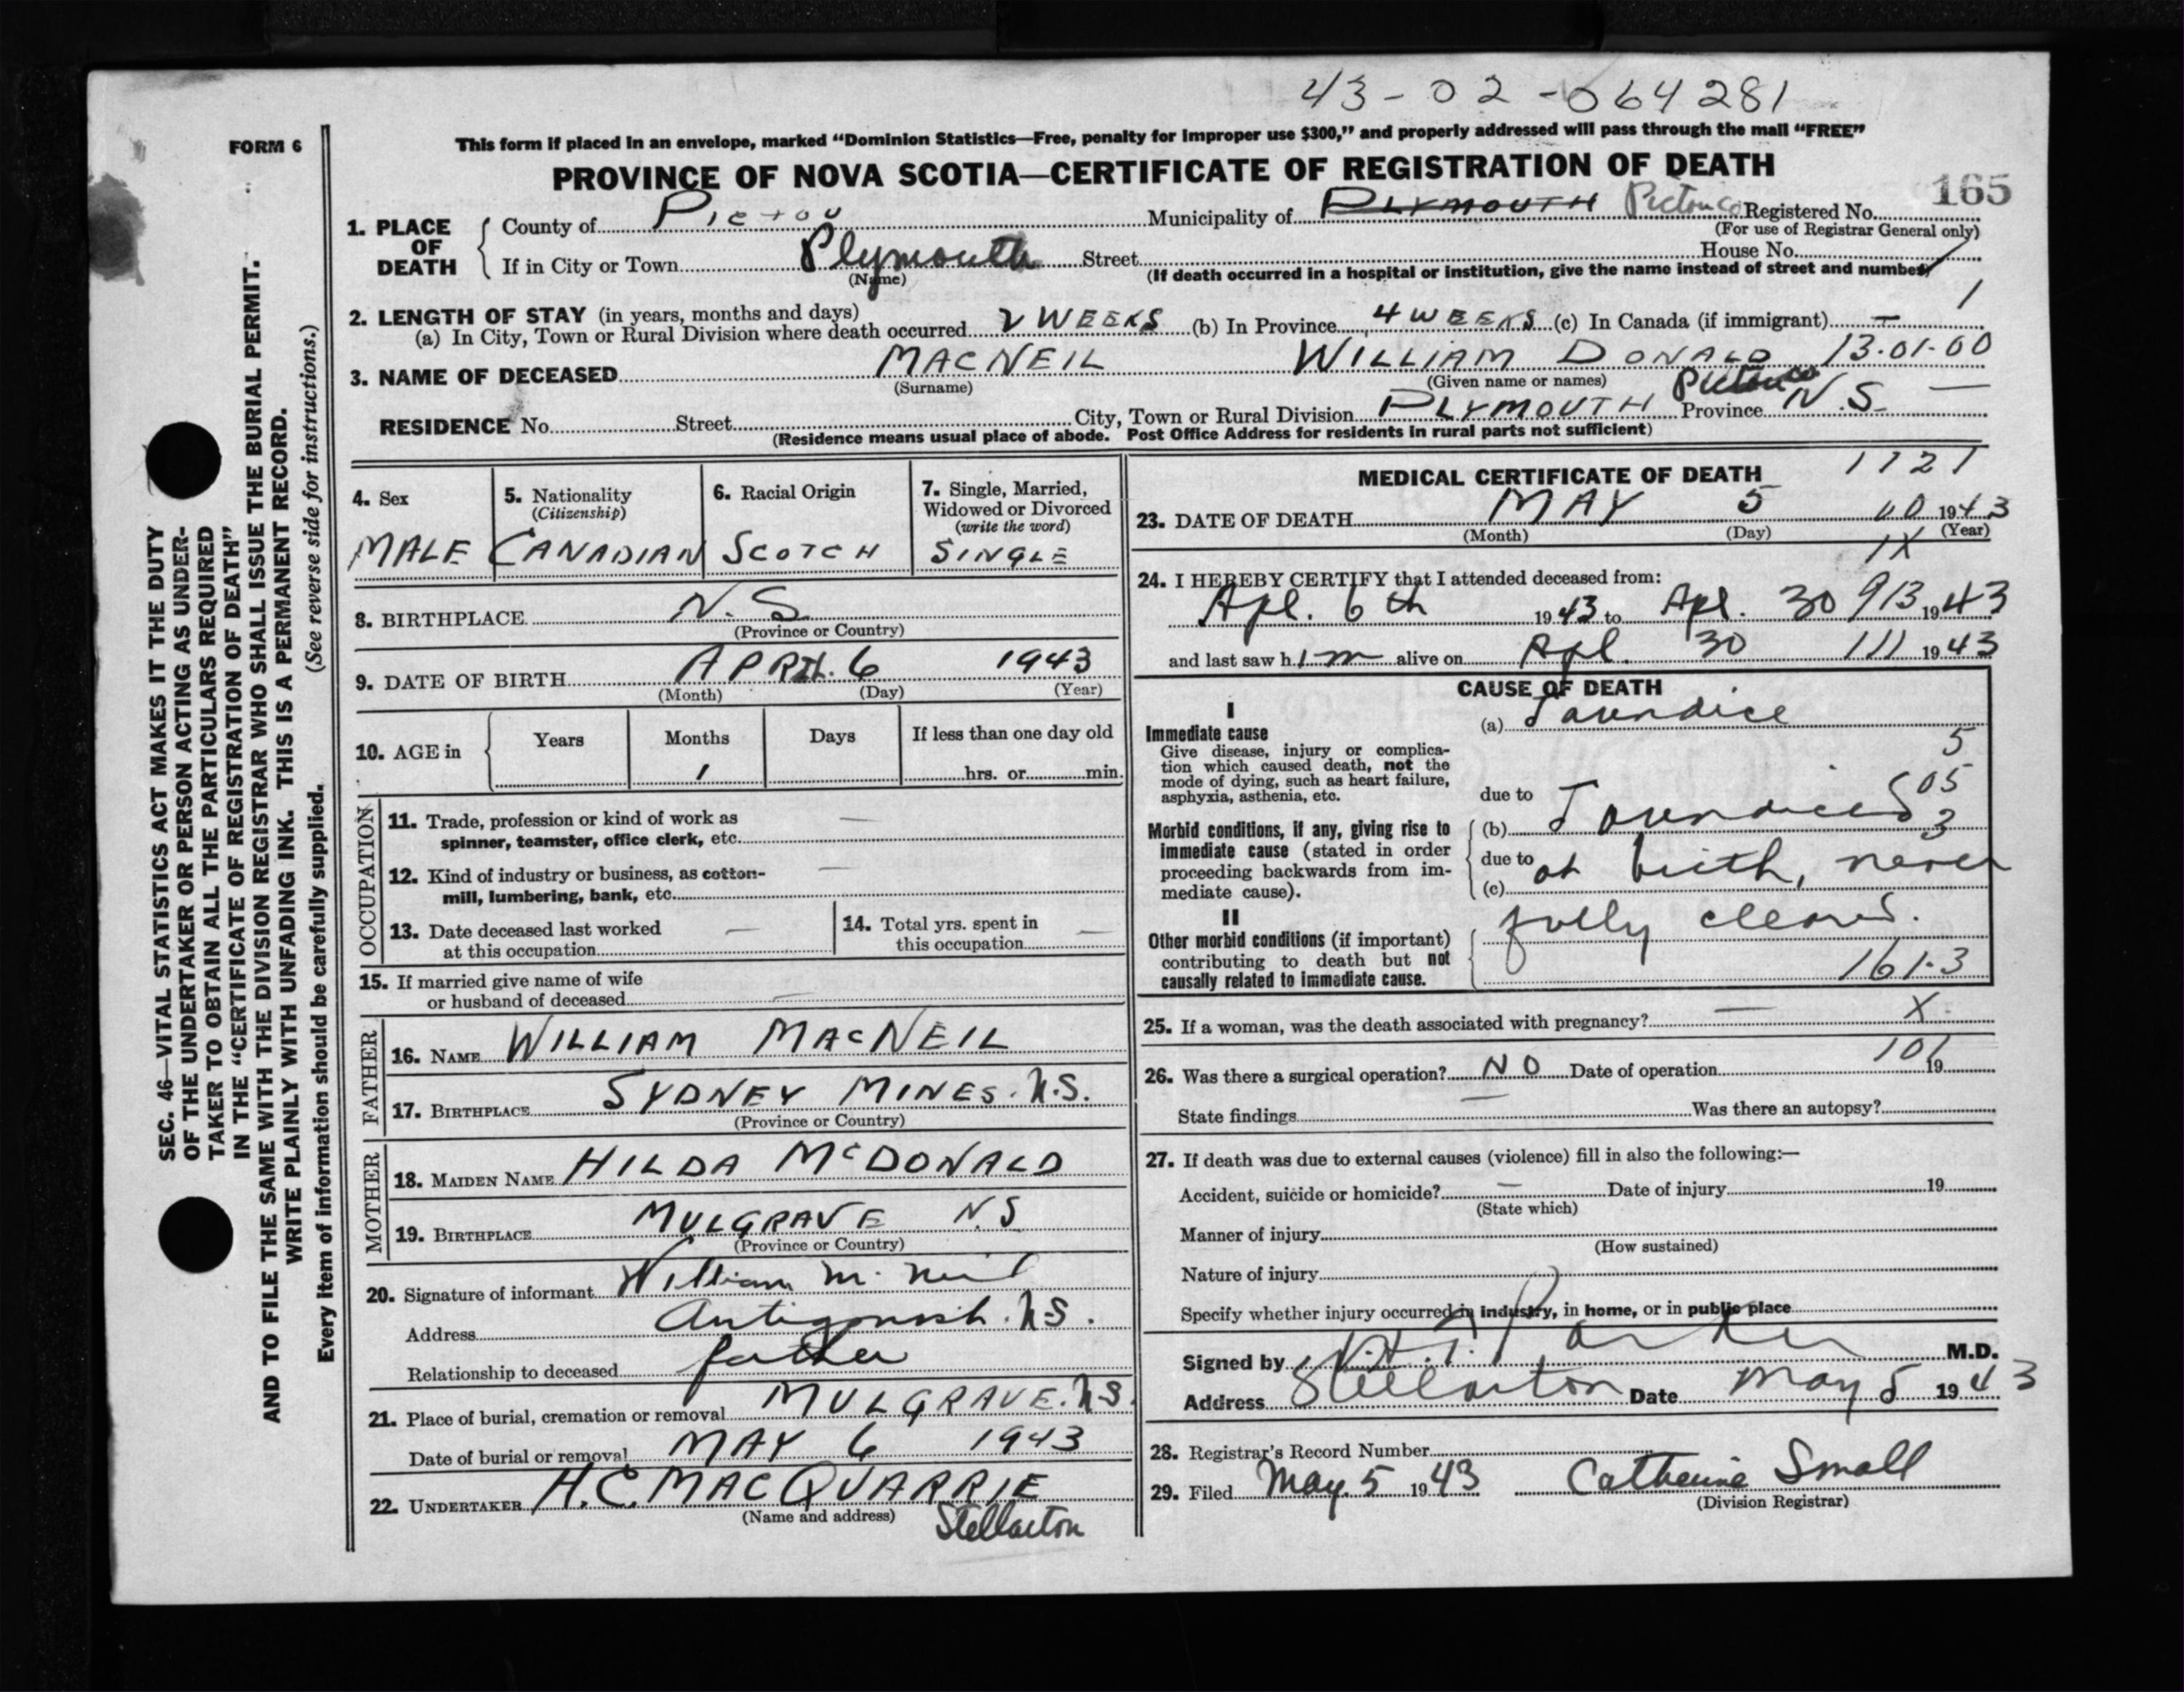 43-02-064281
FORM 6
This form if placed in an envelope, marked “Dominion Statistics—Free, penalty for improper use $300,” and properly addressed will pass through the mail “FREE”
PROVINCE OF NOVA SCOTIA—CERTIFICATE OF REGISTRATION OF DEATH
165
1. PLACE OF DEATH
County of PICTOU Municipality of PLYMOUTH Pictou Co Registered No.
(For use of Registrar General only)
If in City or Town Plymouth Street House No.
(Name) (If death occurred in a hospital or institution, give the name instead of street and number)
1
2. LENGTH OF STAY (in years, months and days)
(a) In City, Town or Rural Division where death occurred 2 WEEKS (b) In Province 4 WEEKS (c) In Canada (if immigrant) —
3. NAME OF DECEASED MACNEIL WILLIAM DONALD 13-01-00
(Surname) (Given name or names)
Pictou Co
RESIDENCE No. Street City, Town or Rural Division PLYMOUTH Province N.S. —
(Residence means usual place of abode. Post Office Address for residents in rural parts not sufficient)
4. Sex 5. Nationality (Citizenship) 6. Racial Origin 7. Single, Married, Widowed or Divorced (write the word)
MALE CANADIAN SCOTCH SINGLE
8. BIRTHPLACE N.S.
(Province or Country)
9. DATE OF BIRTH APRIL 6 1943
(Month) (Day) (Year)
10. AGE in Years Months Days If less than one day old
1 hrs. or min.
OCCUPATION
11. Trade, profession or kind of work as —
spinner, teamster, office clerk, etc.
12. Kind of industry or business, as cotton- —
mill, lumbering, bank, etc.
13. Date deceased last worked — 14. Total yrs. spent in —
at this occupation this occupation
15. If married give name of wife
or husband of deceased —
FATHER
16. NAME WILLIAM MACNEIL
17. BIRTHPLACE SYDNEY MINES. N.S.
(Province or Country)
MOTHER
18. MAIDEN NAME HILDA McDONALD
19. BIRTHPLACE MULGRAVE N.S
(Province or Country)
20. Signature of informant William Mc Neil
Address Antigonish. N.S.
Relationship to deceased father
21. Place of burial, cremation or removal MULGRAVE. N.S.
Date of burial or removal MAY 6 1943
22. UNDERTAKER H.C. MACQUARRIE
(Name and address) Stellarton
MEDICAL CERTIFICATE OF DEATH 1121
23. DATE OF DEATH MAY 5 1943
(Month) (Day) (Year)
1X
24. I HEREBY CERTIFY that I attended deceased from:
Apl. 6th 1943 to Apl. 30 913 1943
and last saw him alive on Apl. 30 111 1943
CAUSE OF DEATH
I
Immediate cause
Give disease, injury or complica-
tion which caused death, not the
mode of dying, such as heart failure,
asphyxia, asthenia, etc.
(a) Jaundice
5
05
3
due to
Morbid conditions, if any, giving rise to
immediate cause (stated in order
proceeding backwards from im-
mediate cause).
(b) Jaundiced
due to at birth, never
(c)
II
Other morbid conditions (if important)
contributing to death but not
causally related to immediate cause.
fully cleared.
161-3
25. If a woman, was the death associated with pregnancy? — X
26. Was there a surgical operation? NO Date of operation 101 19
State findings — Was there an autopsy?
27. If death was due to external causes (violence) fill in also the following:—
Accident, suicide or homicide? — Date of injury 19
(State which)
Manner of injury
(How sustained)
Nature of injury
Specify whether injury occurred in industry, in home, or in public place
Signed by Parker M.D.
Address Stellarton Date May 5 1943
28. Registrar's Record Number
29. Filed May. 5 1943 Catherine Small
(Division Registrar)
SEC. 46—VITAL STATISTICS ACT MAKES IT THE DUTY
OF THE UNDERTAKER OR PERSON ACTING AS UNDER-
TAKER TO OBTAIN ALL THE PARTICULARS REQUIRED
IN THE “CERTIFICATE OF REGISTRATION OF DEATH”
AND TO FILE THE SAME WITH THE DIVISION REGISTRAR WHO SHALL ISSUE THE BURIAL PERMIT.
WRITE PLAINLY WITH UNFADING INK. THIS IS A PERMANENT RECORD.
Every item of information should be carefully supplied. (See reverse side for instructions.)